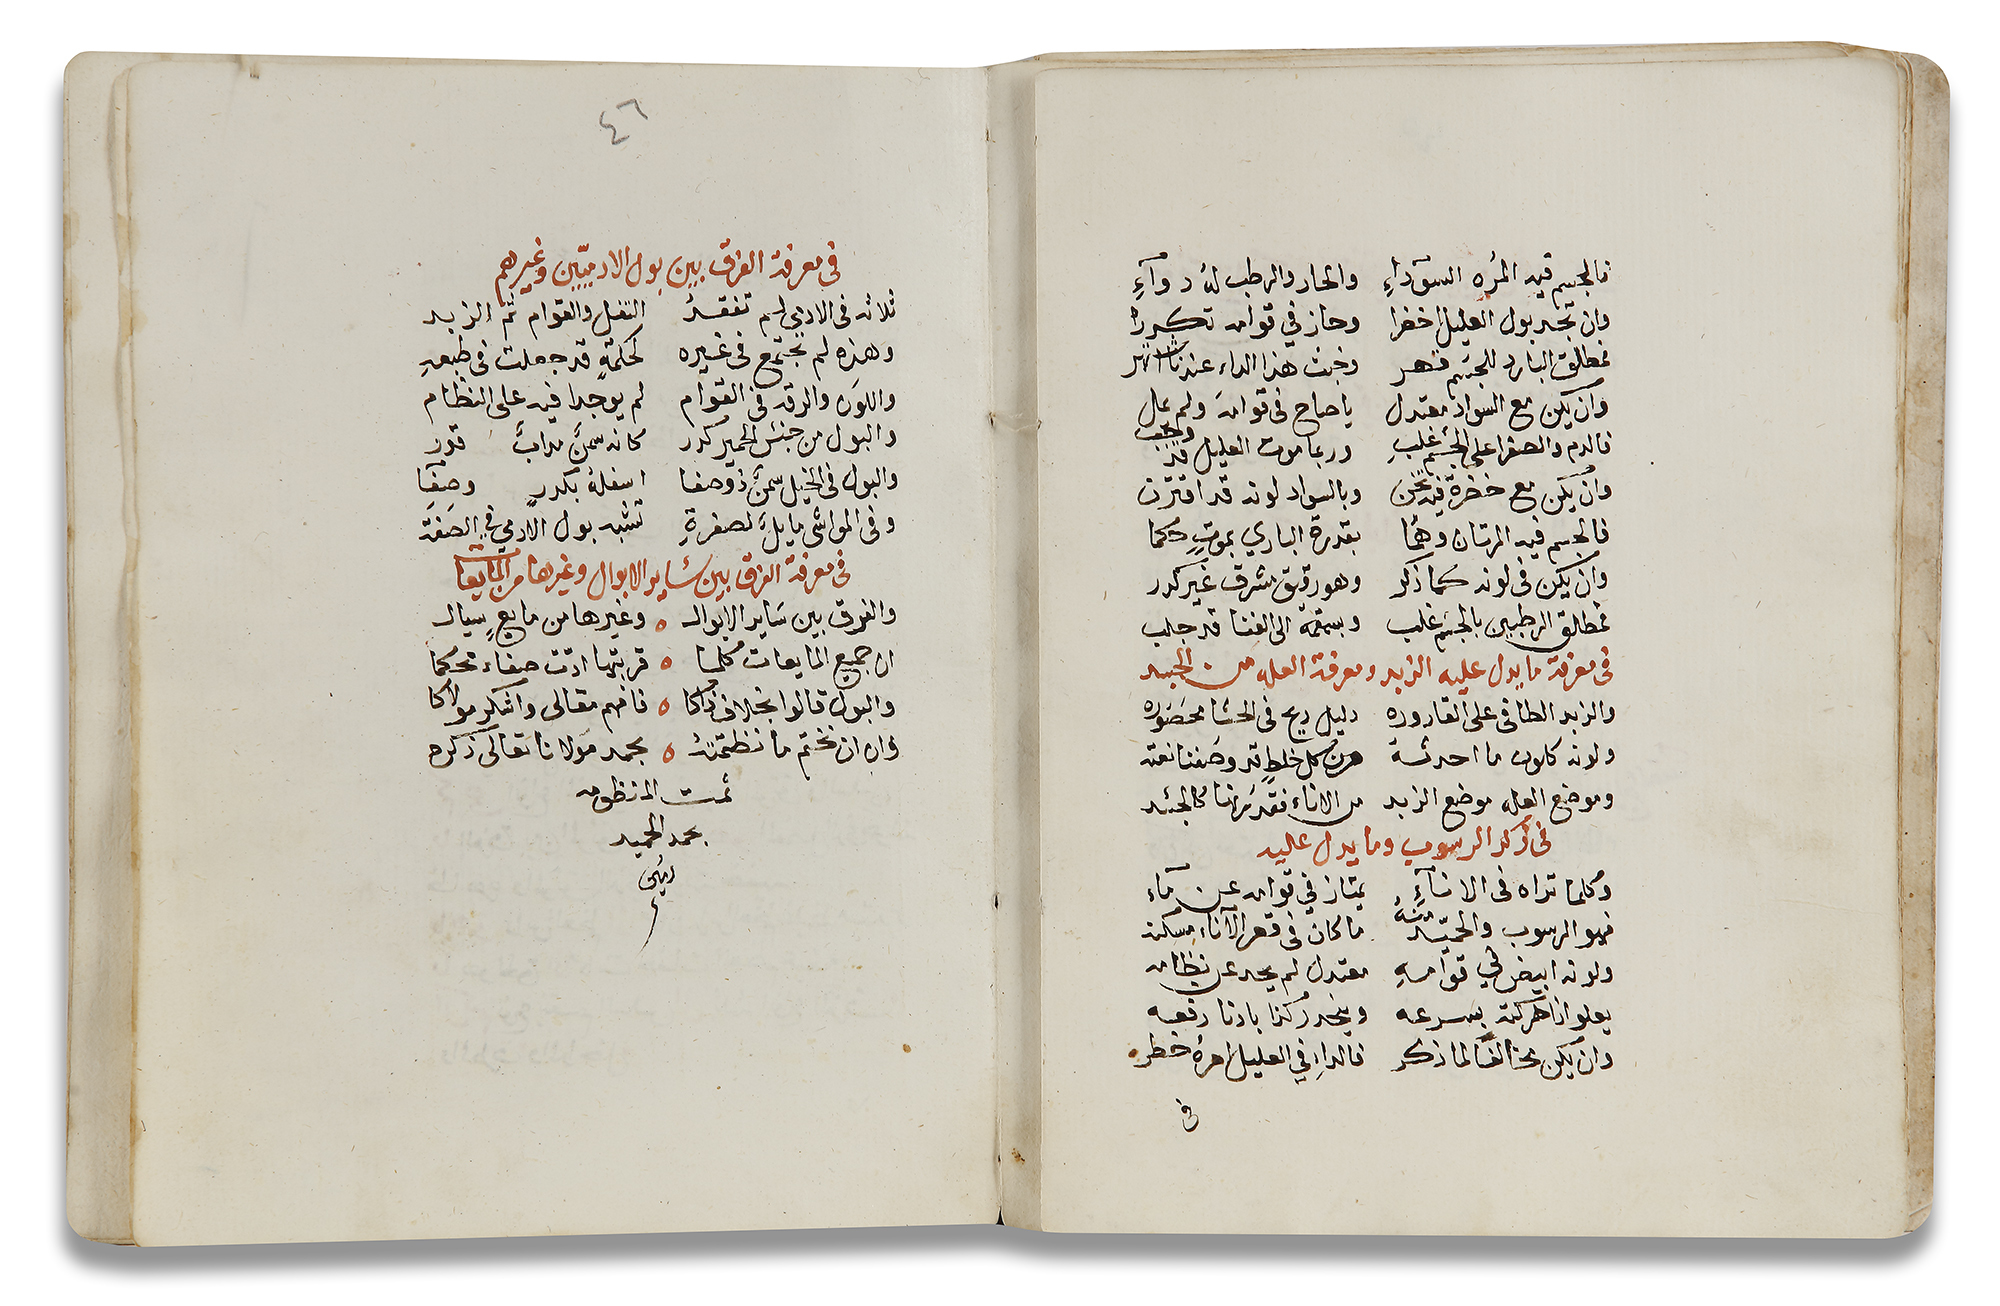 فالجسم فيه المره السوداء والحار والرطب له دواء
وان تجد بول العليل اخضرا وحاز في قوامه تكررا
فمطلق البارد للجسم قهر وخبث هذا الداء عندنا اشتهر
وان يكن مع السواد معتدل ياصاح في قوامه ولم يمل
فالدم والصفرا على الجسم غلب وربما موت العليل قد وجب
وان يكن مع خضرة فيه تخن وبالسواد لونه قد اقترن
فالجسم فيه المرتان وهما بقدرة الباري بموت حكما
وان يكن في لونه كما ذكر وهو رقيق مشرق غير كدر
فمطلق الرطبين بالجسم غلب وسقمه الى الفنا قد جلب
في معرفة ما يدل عليه الزبد ومعرفة العله من الجسد
والزبد الطافي على القاروره دليل ريح في الحشا محصوره
ولونه كلون ما احدثه من كل خلط قد وصفنا نعته
وموضع العله موضع الزبد من الاناء فقد نرنها كالجسد
في ذكر الرسوب وما يدل عليه
وكلما تراه في الاناء يمتاز في قوامه عن ماء
فهو الرسوب والحميد منه ما كان في قعر الاناء مسكنه
ولونه ابيض في قوامه معتدل لم يحد عن نظامه
يعلو اذا حركته بسرعه وينحدر كذا بادنا رفعه
وان يكن مخالفا لما ذكر فالداء في العليل امره خطر
في
٤٦
في معرفة الفرق بين بول الادميين وغيرهم
ثلاثه في الادمي لم تفتقد الثفل والقوام ثم الزبد
وهذه لم تجتمع في غيره لحكمة قد جعلت في طبعه
واللون والرقه في القوام لم يوجدا فيه على النظام
والبول من جنس الحمير كدر كانه سمن مداب قور
والبول في الخيل سمن ذو صفا اسفله بكدر وصفا
وفي المواشي مايل لصفرة تشبه بول الادمي في الصفة
في معرفة الفرق بين ساير الابوال وغيرها من المايعات
والفرق بين ساير الابوال ه وغيرها من مايع سيال
ان جميع المايعات كلما ه قربتها ادت صفاء محكما
والبول قالوا بخلاف ذاكا ه فافهم مقالي واشكر مولاكا
وان ان نختم ما نظمته ه بحمد مولانا تعالى ذكره
تمت المنظومه
بحمد الحميد
امين